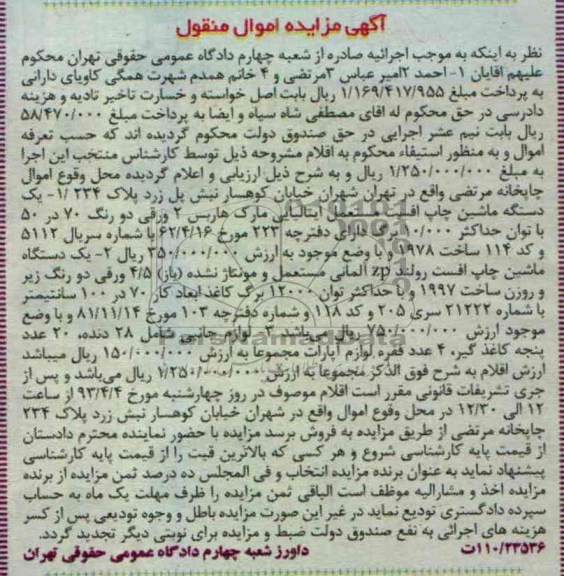 آگهی مزایده اموال منقول
نظر به اینکه به موجب اجرائیه صادره از شعبه چهارم دادگاه عمومی حقوقی تهران محکوم
علیهم آقایان ۱- احمد ۲امیر عباس ۳مرتضی و ۴ خانم همدم شهرت همگی کاویای دارانی
به پرداخت مبلغ ۱/۱۶۹/۴۱۷/۹۵۵ ریال بابت اصل خواسته و خسارت تاخیر تادیه و هزینه
دادرسی در حق محکوم له اقای مصطفی شاه سیاه و ایضا به پرداخت مبلغ ۵۸/۴۷۰/۰۰۰
ریال بابت نیم عشر اجرایی در حق صندوق دولت محکوم گردیده اند که حسب تعرفه
اموال و به منظور استیفاء محکوم به اقلام مشروحه ذیل توسط کارشناس منتخب این اجرا
به مبلغ ۱/۲۵۰/۰۰۰/۰۰۰ ریال و به شرح ذیل ارزیابی و اعلام گردیده محل وقوع اموال
چاپخانه مرتضی واقع در تهران شهران خیابان کوهسار نبش پل زرد پلاک ۲۳۴ ۱/- یک
دستگاه ماشین چاپ افست ایتالیایی مارک هاریس ۲ ورقی دو رنگ ۷۰ در ۵۰
با توان حداکثر ۱۰/۰۰۰ برگ دارای دفترچه ۲۲۳ مورخ ۶۲/۴/۱۶ با شماره سریال ۵۱۱۲
و کد ۱۱۴ ساخت ۱۹۷۸ و با وضع موجود به ارزش ۳۵۰/۰۰۰/۰۰۰ ریال ۲- یک دستگاه
ماشین چاپ افست رولند zp آلمانی مستعمل و مونتاژ نشده (باز) ۴/۵ ورقی دو رنگ زیر
و روزن ساخت ۱۹۹۷ و با حداکثر توان ۱۲۰۰۰ برگ کاغذ ابعاد کار ۷۰ در ۱۰۰ سانتیمتر
با شماره ۲۱۲۲۲ سری ۲۰۵ و کد ۱۱۸ و شماره دفترچه ۱۰۳ مورخ ۸۱/۱۱/۱۴ و با وضع
موجود ارزش ۷۵۰/۰۰۰/۰۰۰ ریال میباشد ۳- لوازم جانبی شامل ۲۸ دنده، ۲۰ عدد
پنجه کاغذ گیر، ۴ عدد قفره لوازم آپارات مجموعا به ارزش ۱۵۰/۰۰۰/۰۰۰ ریال میباشد
ارزش اقلام به شرح فوق الذکر مجموعا به ارزش ۱/۲۵۰/۰۰۰/۰۰۰ ریال می‌باشد و پس از
جری تشریفات قانونی مقرر است اقلام موصوف در روز چهارشنبه مورخ ۹۳/۴/۴ از ساعت
۱۲ الی ۱۲/۳۰ در محل وقوع اموال واقع در شهران خیابان کوهسار نبش زرد پلاک ۲۳۴
چاپخانه مرتضی از طریق مزایده به فروش برسد مزایده با حضور نماینده محترم دادستان
از قیمت پایه کارشناسی شروع و هر کسی که بالاترین قیت را از قیمت پایه کارشناسی
پیشنهاد نماید به عنوان برنده مزایده انتخاب و فی المجلس ده درصد ثمن مزایده از برنده
مزایده اخذ و مشارالیه موظف است الباقی ثمن مزایده را ظرف مهلت یک ماه به حساب
سپرده دادگستری تودیع نماید در غیر این صورت مزایده باطل و وجوه تودیعی پس از کسر
هزینه های اجرائی به نفع صندوق دولت ضبط و مزایده برای نوبتی دیگر تجدید گردد.
۱۱۰/۲۳۵۳۶ت داورز شعبه چهارم دادگاه عمومی حقوقی تهران